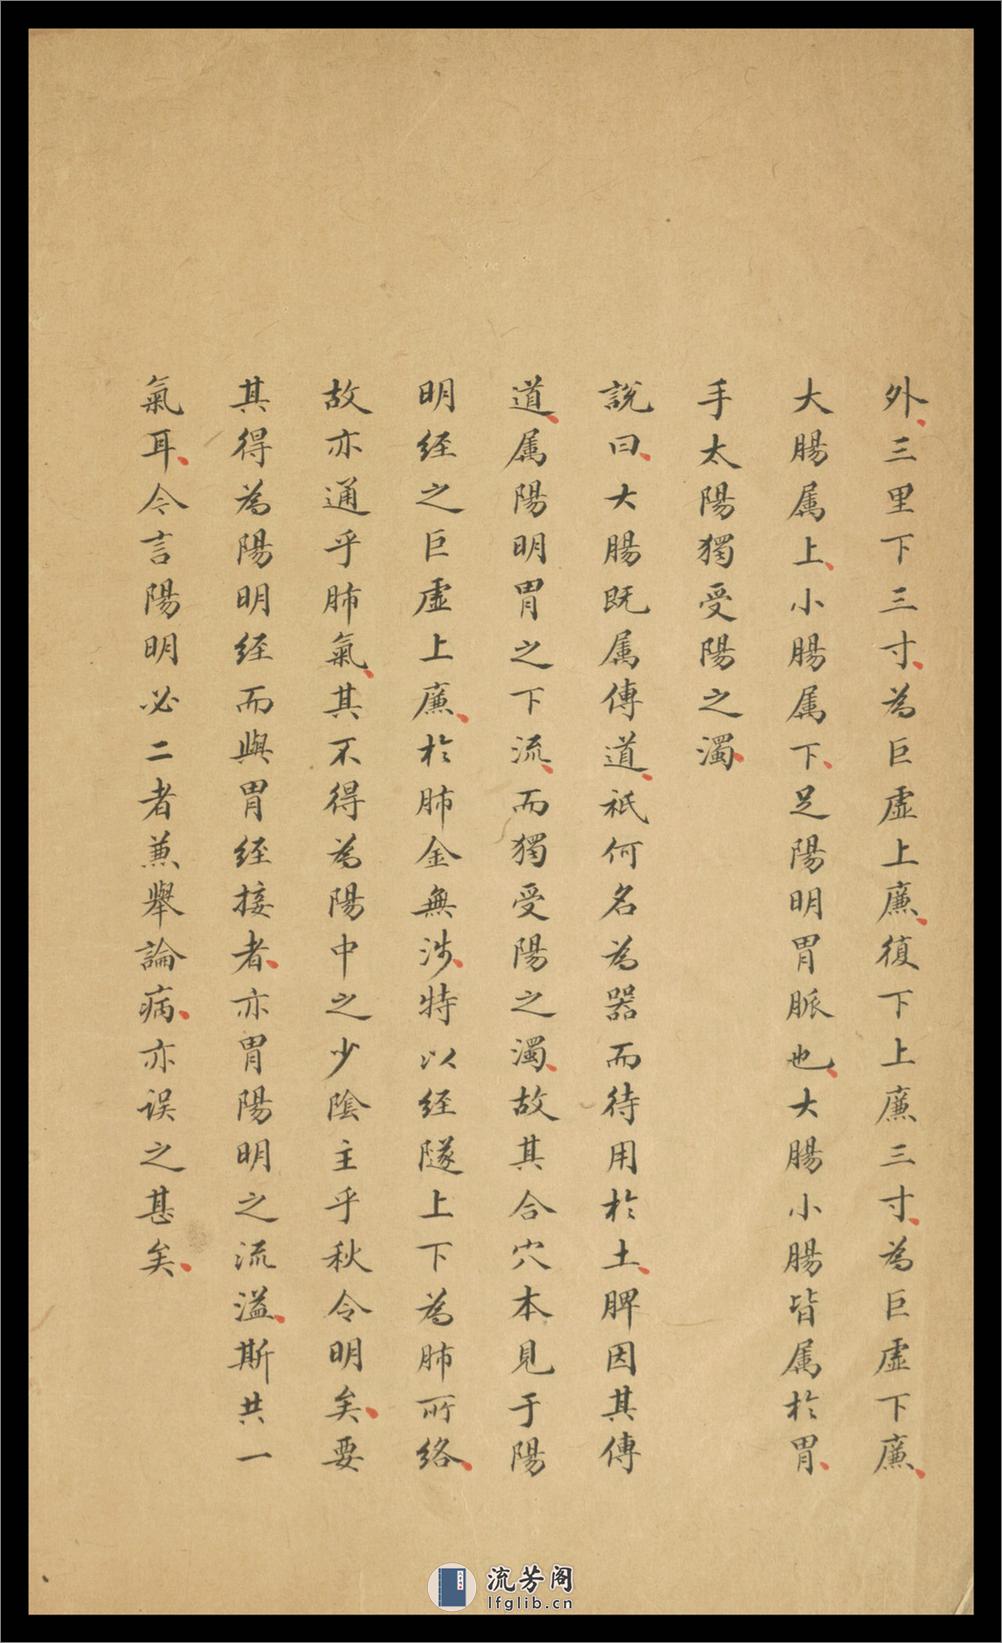 外三里下三寸為巨虛上廉復下上廉三寸為巨虛下廉
大腸属上小腸属下足陽明胃脈也大腸小腸皆属於胃
手太陽獨受陽之濁
說曰大腸既属傳道祇何名為器而待用於土脾因其傳
道属陽明胃之下流而獨受陽之濁故其合穴本見于陽
明経之巨虛上廉於肺金無涉特以経隧上下為肺所絡
故亦通乎肺氣其不得為陽中之少陰主乎秋令明矣要
其得為陽明経而與胃経接者亦胃陽明之流溢斯共一
氣耳令言陽明必二者蕙舉論病亦误之甚矣
流芳阁
lfglib.cn